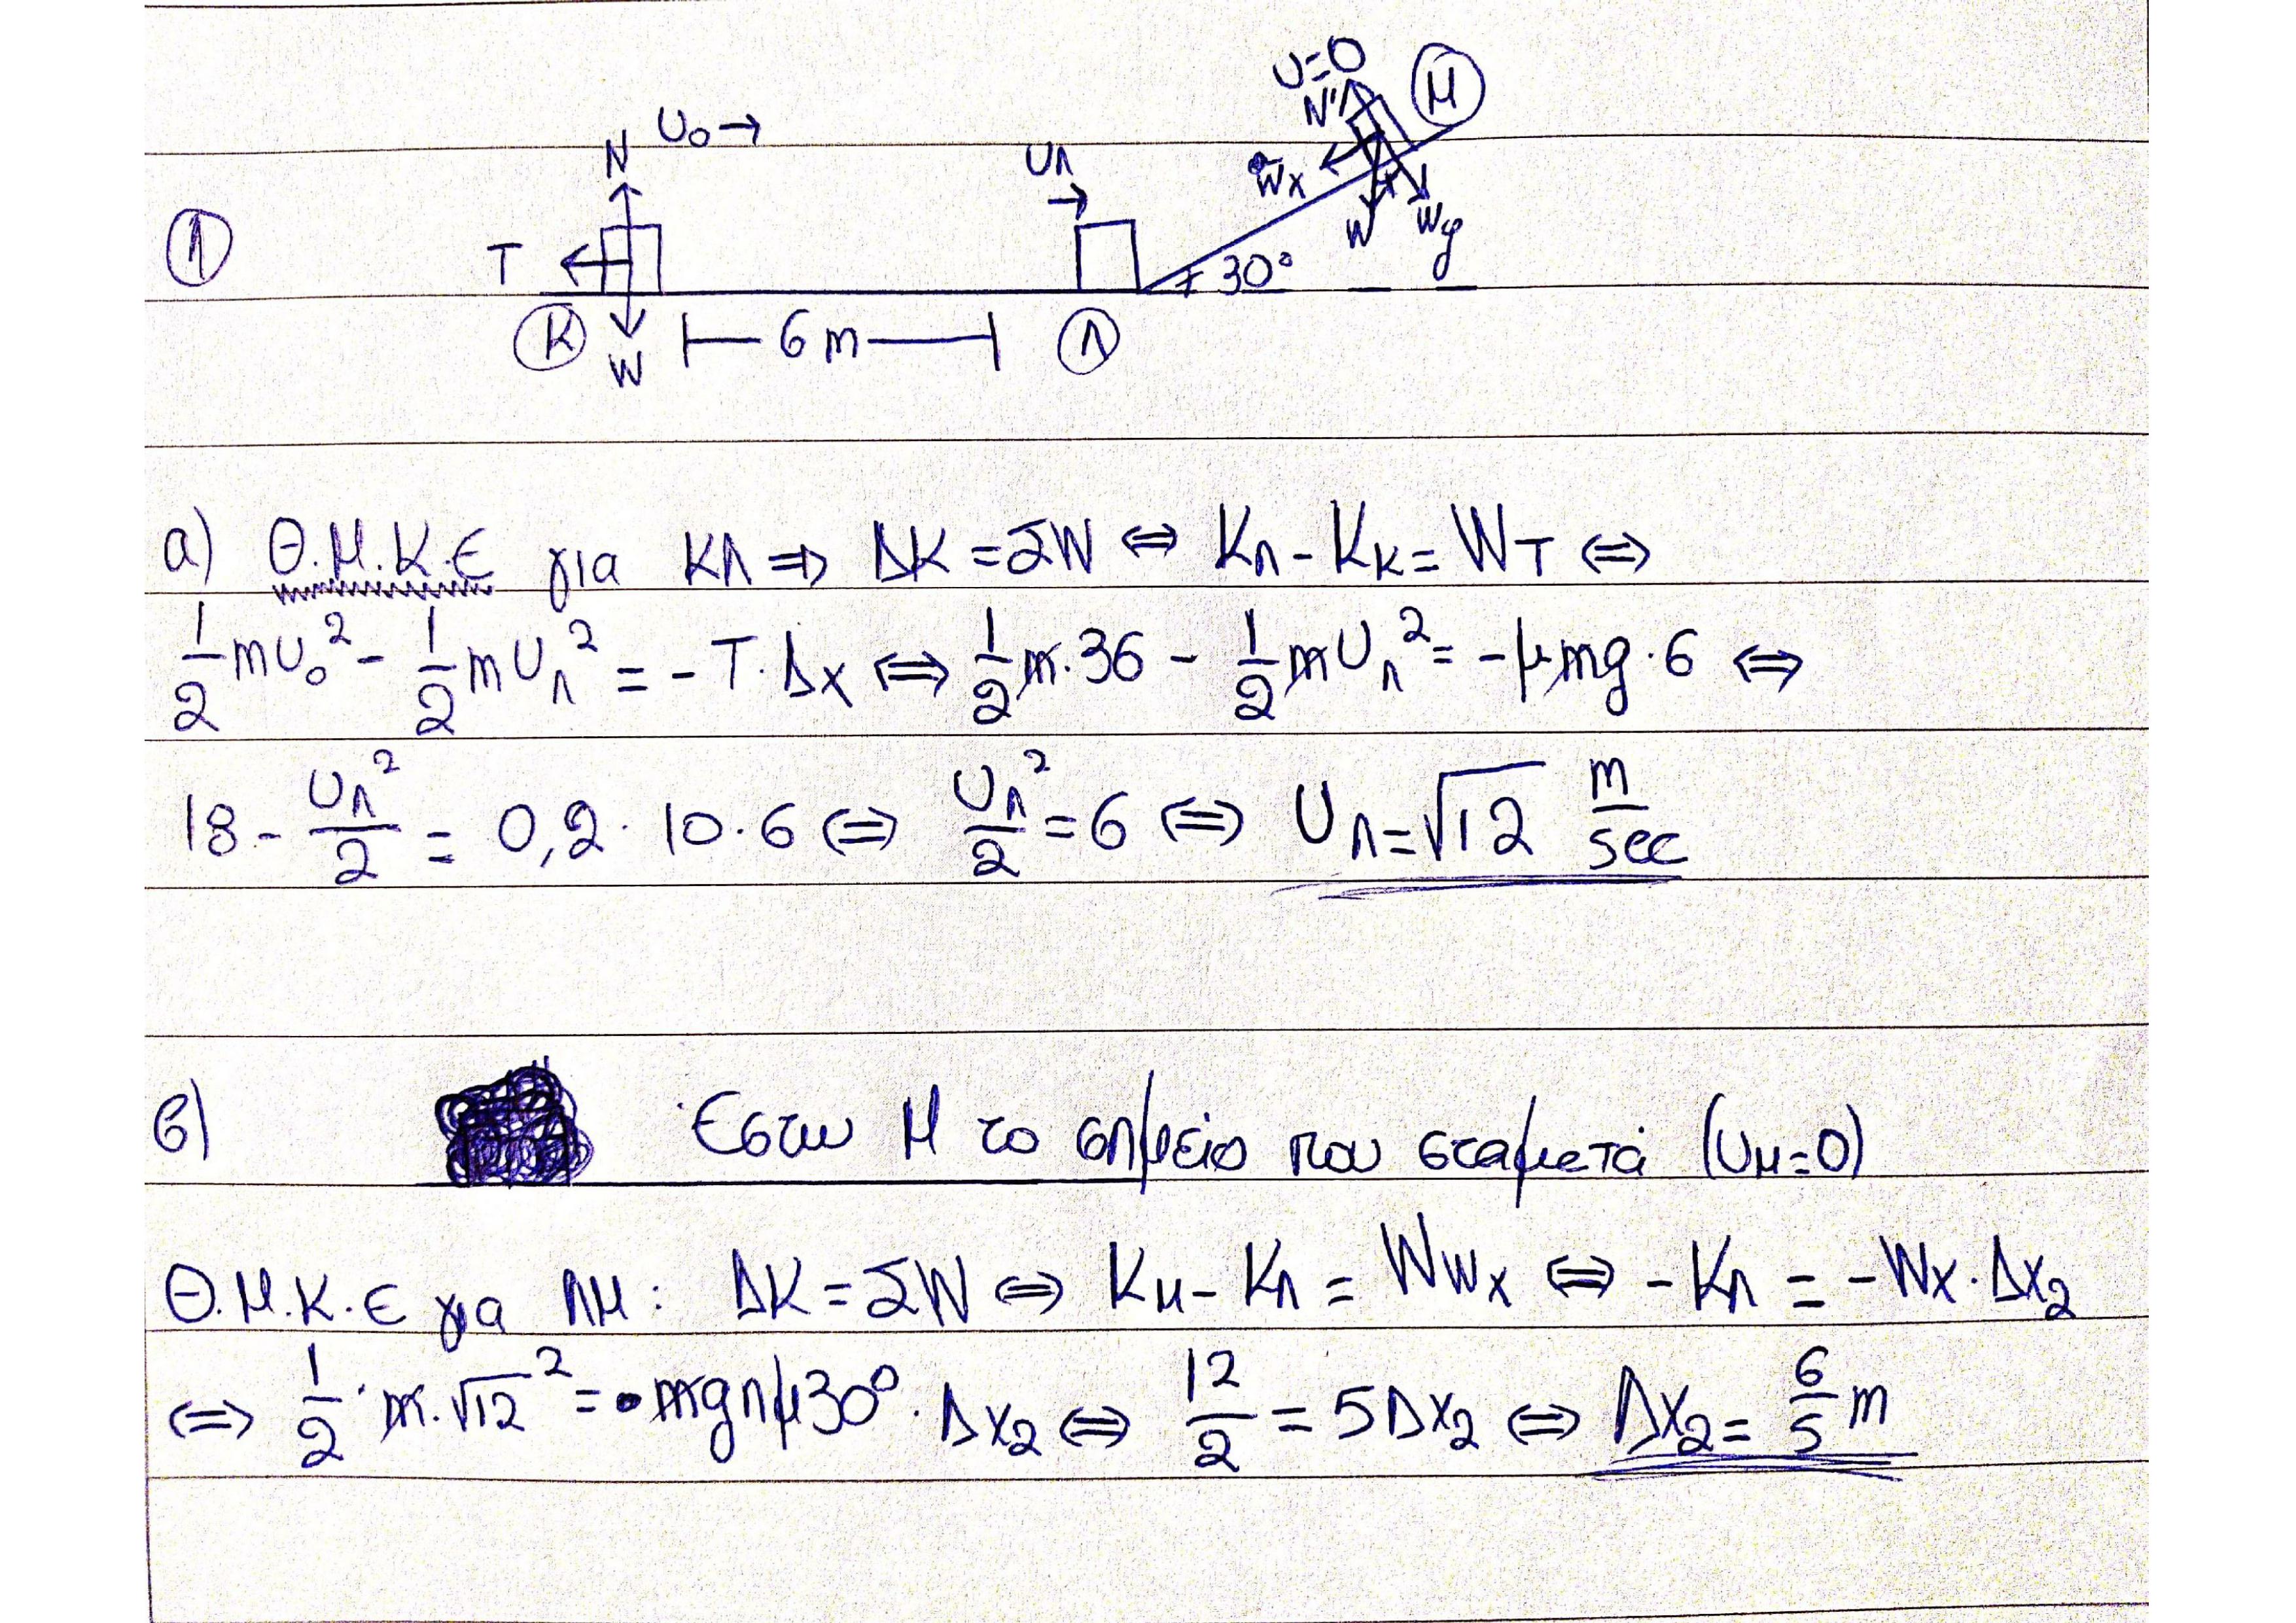 U=0 Μ
N'
N U₀→
U_Λ →
Wx
W Wy
① T 30°
Κ W 6 m Λ
α) Θ.Μ.Κ.Ε για ΚΛ ⇒ ΔΚ = ΣW ⇔ K_Λ - K_K = W_T ⇔
1/2 mU₀² - 1/2 mU_Λ² = - T·Δx ⇔ 1/2 m·36 - 1/2 mU_Λ² = -μmg·6 ⇔
18 - U_Λ²/2 = 0,2·10·6 ⇔ U_Λ²/2 = 6 ⇔ U_Λ = √12 m/sec
β) Έστω Μ το σημείο που σταματά (U_Μ=0)
Θ.Μ.Κ.Ε για ΛΜ: ΔΚ = ΣW ⇔ K_Μ - K_Λ = W_Wx ⇔ -K_Λ = -Wx·Δx₂
⇔ 1/2·m·√12² = mgημ30°·Δx₂ ⇔ 12/2 = 5Δx₂ ⇔ Δx₂ = 6/5 m